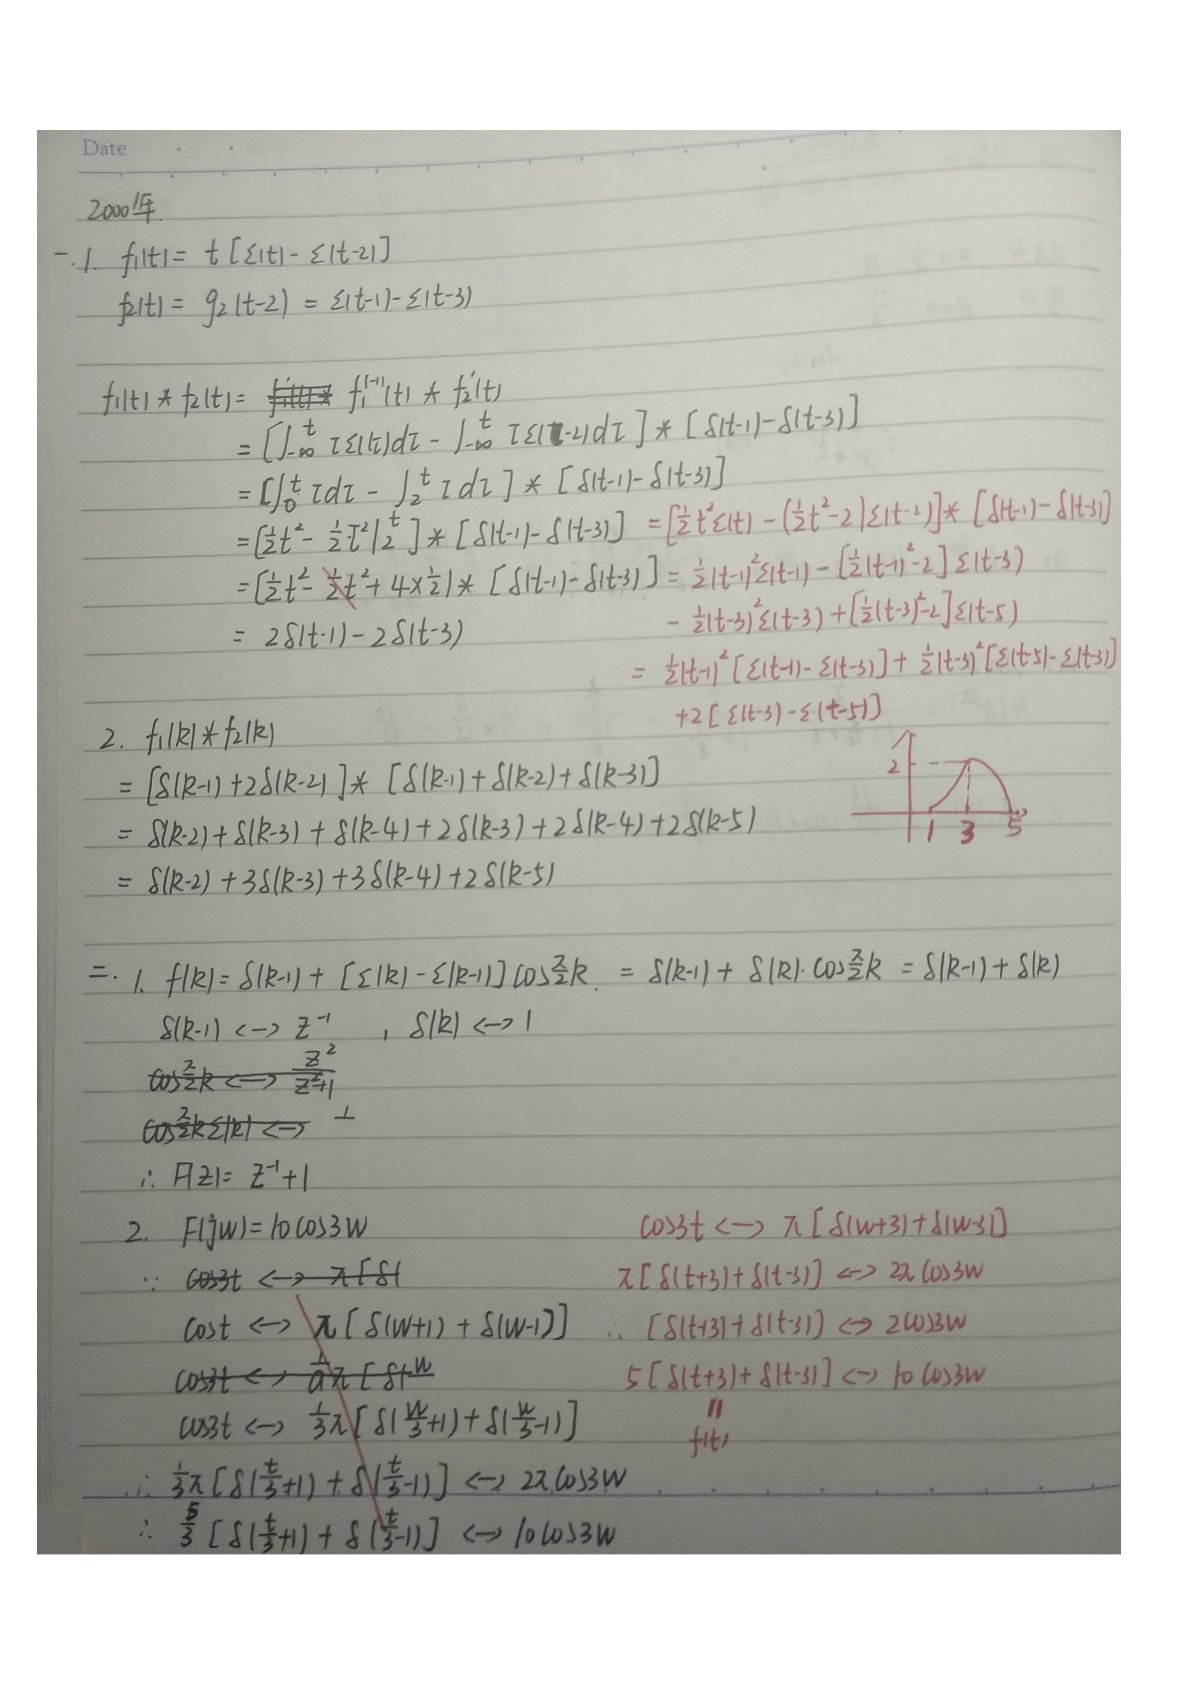 Date
2000年
一.1. f₁(t) = t[ε(t) - ε(t-2)]
f₂(t) = g₂(t-2) = ε(t-1) - ε(t-3)
f₁(t) * f₂(t) = f₁⁽⁻¹⁾(t) * f₂'(t)
= [∫_{-∞}^{t} τε(τ)dτ - ∫_{-∞}^{t} τε(τ-2)dτ] * [δ(t-1) - δ(t-3)]
= [∫_0^t τdτ - ∫_2^t τdτ] * [δ(t-1) - δ(t-3)]
= [½t² - ½τ²|_2^t] * [δ(t-1) - δ(t-3)] = [½t²ε(t) - (½t²-2)ε(t-2)] * [δ(t-1) - δ(t-3)]
= (½t² - ½t² + 4×½) * [δ(t-1) - δ(t-3)] = ½(t-1)²ε(t-1) - [½(t-1)²-2]ε(t-3)
- ½(t-3)²ε(t-3) + [½(t-3)²-2]ε(t-5)
= 2δ(t-1) - 2δ(t-3)
= ½(t-1)²[ε(t-1) - ε(t-3)] + ½(t-3)²[ε(t-5) - ε(t-3)]
+2[ε(t-3) - ε(t-5)]
2. f₁(k) * f₂(k)
= [δ(k-1) + 2δ(k-2)] * [δ(k-1) + δ(k-2) + δ(k-3)]
2
= δ(k-2) + δ(k-3) + δ(k-4) + 2δ(k-3) + 2δ(k-4) + 2δ(k-5)
1 3 5
= δ(k-2) + 3δ(k-3) + 3δ(k-4) + 2δ(k-5)
二. 1. f(k) = δ(k-1) + [ε(k) - ε(k-1)]cos π/2 k = δ(k-1) + δ(k)·cos π/2 k = δ(k-1) + δ(k)
δ(k-1) <-> z⁻¹ , δ(k) <-> 1
cos π/2 k <-> z²/(z²+1)
cos π/2 k ε(k) <->
∴ F(z) = z⁻¹ + 1
2. F(jw) = 10cos3w
∵ cos3t <-> π[δ(
cost <-> π[δ(w+1) + δ(w-1)]
cos3t <-> 1/a π[δ(w
cos3t <-> ⅓π[δ(w/3+1) + δ(w/3-1)]
∴ ⅓π[δ(t/3+1) + δ(t/3-1)] <-> 2πcos3w
∴ 5/3[δ(t/3+1) + δ(t/3-1)] <-> 10cos3w
cos3t <-> π[δ(w+3) + δ(w-3)]
π[δ(t+3) + δ(t-3)] <-> 2πcos3w
∴ [δ(t+3) + δ(t-3)] <-> 2cos3w
5[δ(t+3) + δ(t-3)] <-> 10cos3w
=
f(t)